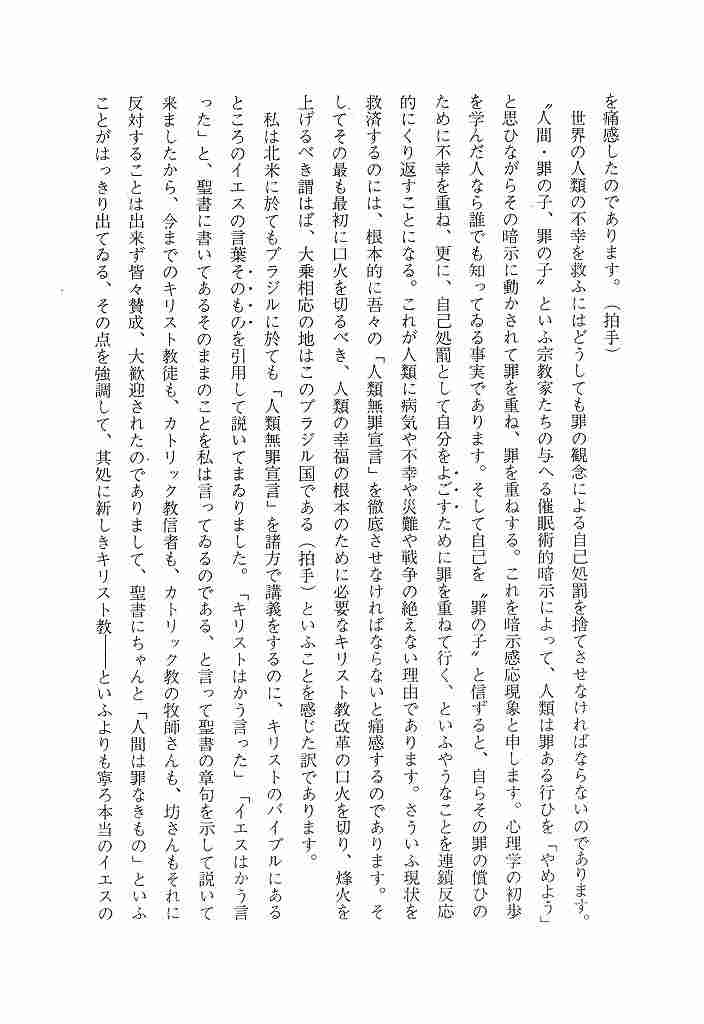 を痛感したのであります。（拍手）
世界の人類の不幸を救ふにはどうしても罪の観念による自己処罰を捨てさせなければならないのであります。
〝人間・罪の子、罪の子〟といふ宗教家たちの与へる催眠術的暗示によって、人類は罪ある行ひを「やめよう」
と思ひながらその暗示に動かされて罪を重ね、罪を重ねする。これを暗示感応現象と申します。心理学の初歩
を学んだ人なら誰でも知ってゐる事実であります。そして自己を〝罪の子〟と信ずると、自らその罪の償ひの
ために不幸を重ね、更に、自己処罰として自分をよごすために罪を重ねて行く、といふやうなことを連鎖反応
的にくり返すことになる。これが人類に病気や不幸や災難や戦争の絶えない理由であります。さういふ現状を
救済するのには、根本的に吾々の「人類無罪宣言」を徹底させなければならないと痛感するのであります。そ
してその最も最初に口火を切るべき、人類の幸福の根本のために必要なキリスト教改革の口火を切り、烽火を
上げるべき謂はば、大乗相応の地はこのブラジル国である（拍手）といふことを感じた訳であります。
私は北米に於てもブラジルに於ても「人類無罪宣言」を諸方で講義をするのに、キリストのバイブルにある
ところのイエスの言葉そのものを引用して説いてまゐりました。「キリストはかう言った」「イエスはかう言
った」と、聖書に書いてあるそのままのことを私は言ってゐるのである、と言って聖書の章句を示して説いて
来ましたから、今までのキリスト教徒も、カトリック教信者も、カトリック教の牧師さんも、坊さんもそれに
反対することは出来ず皆々賛成、大歓迎されたのでありまして、聖書にちゃんと「人間は罪なきもの」といふ
ことがはっきり出てゐる、その点を強調して、其処に新しきキリスト教――といふよりも寧ろ本当のイエスの